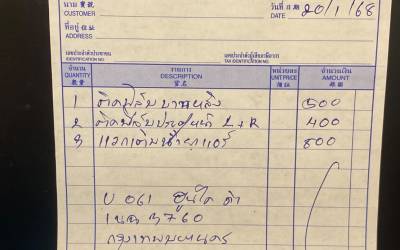 นาม 寶號
CUSTOMER
วันที่ 日期
DATE 20/1/68
ที่อยู่ 住址
ADDRESS
เลขประจำตัวประชาชน
IDENTIFICATION NO.
เลขประจำตัวผู้เสียภาษีอากร
TAX IDENTIFICATION NO.
จำนวน รายการ หน่วยละ จำนวนเงิน
QUANTITY DESCRIPTION UNIT PRICE AMOUNT
數量 貨名
1 ติดฟิล์มบานหลัง 500
2 ติดฟิล์มประตูหน้า L+R 400
3 แวกเติมน้ำยาแอร์ 800
บ 061 ฮุนได ดำ
3760
กรุงเทพมหานคร